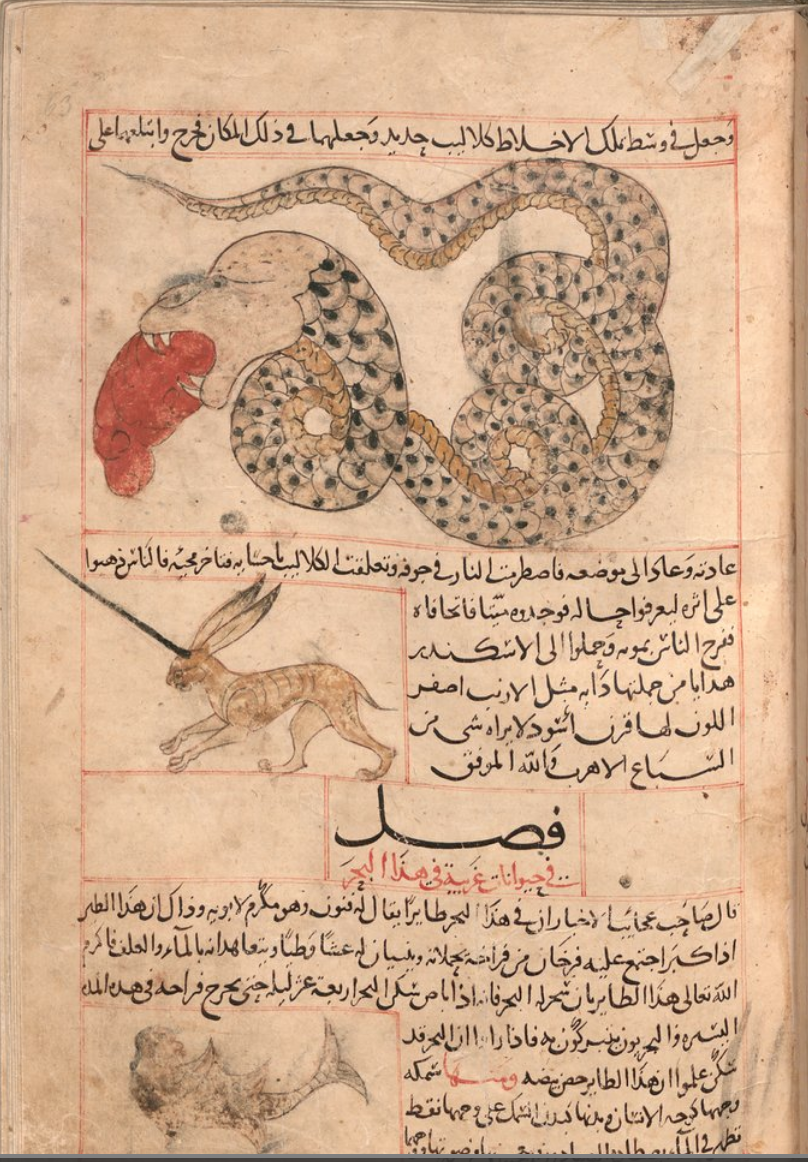 وجعل في وسط تلك الاخلاط كلاليب حديد وجعلهما في ذلك المكان فخرج وابتلعهما على
عادته وعاد الى موضعه فاضطرمت النار في جوفه وتعلقت الكلاليب باحشايه فتاخر مجيه فالناس ذهبوا
على اثره ليعرفوا حاله فوجدوه ميتا فاتحا فاه
ففرح الناس بموته وحملوا الى الاسكندر
هدايا من جملتها دابه مثل الارنب اصفر
اللون لها قرن اسود لا يراه شي من
السباع الا هرب والله الموفق
فصل
في حيوانات غريبة في هذا البحر
قال صاحب عجائب الاخبار ان في هذا البحر طايرا يقال له فنون وهو مكرم لابويه وذاك ان هذا الطير
اذا كبر اجتمع عليه فرخان من فراخه يحملانه ويبنيان له عشا وطيا ويتعاهدانه بالماء والعلف فاكرم
الله تعالى هذا الطاير بان سخر له البحر فانه اذا باض سكن البحر اربعة عشر ليله حتى يخرج فراخه في هذه المده
اليسيره والبحريون يتبركون به فاذا راوا ان البحر قد
سكن علموا ان هذا الطاير حضن بيضه ومنها سمكه
وجهها كوجه الانسان وبدنها كبدن السمك على وجهها نقط
تظهر في الماء